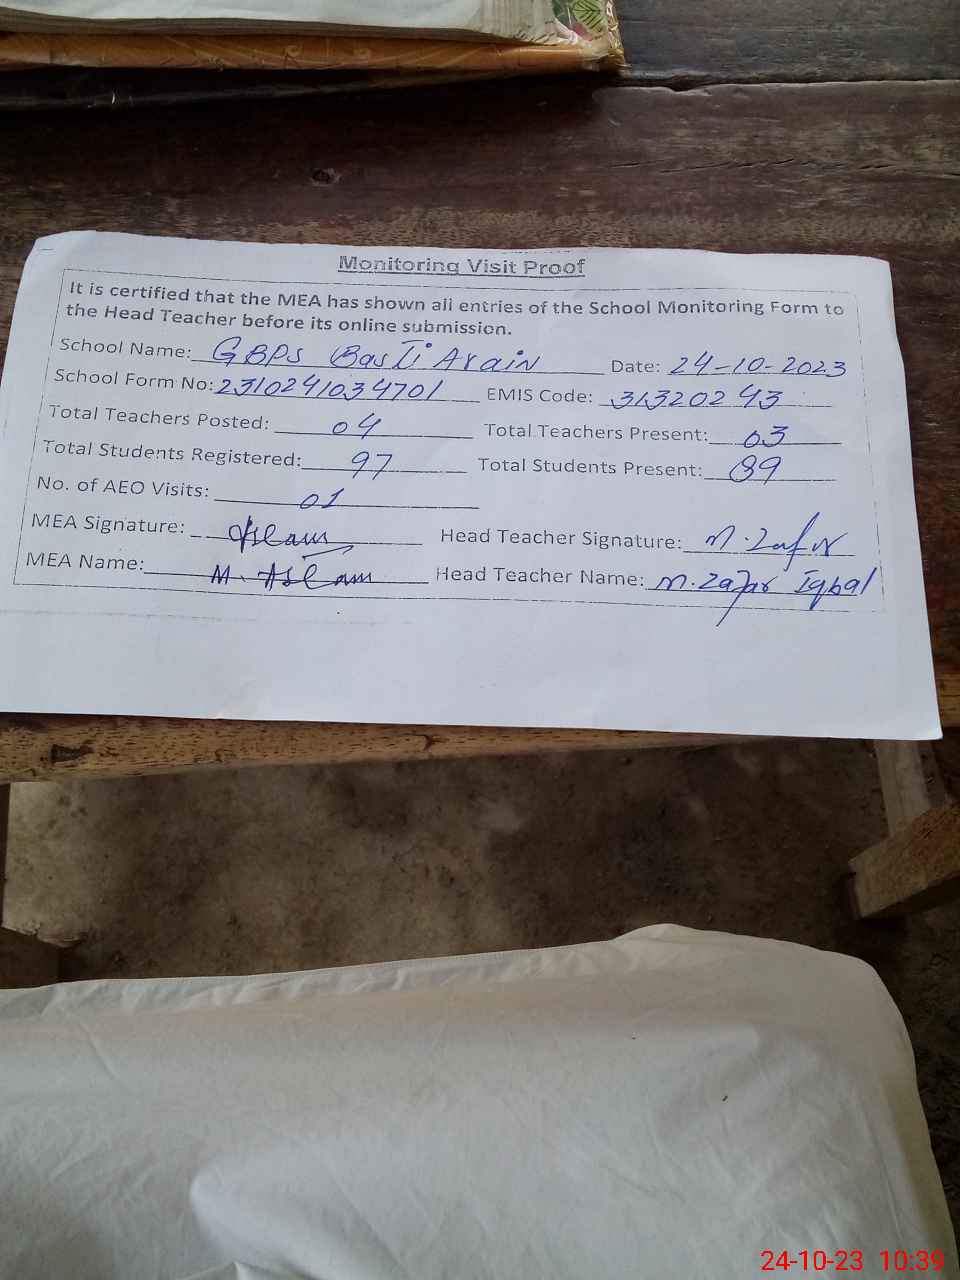 Monitoring Visit Proof
It is certified that the MEA has shown all entries of the School Monitoring Form to
the Head Teacher before its online submission.
School Name: GBPS Basti Arain Date: 24-10-2023
School Form No: 2310241034701 EMIS Code: 31320243
Total Teachers Posted: 04 Total Teachers Present: 03
Total Students Registered: 97 Total Students Present: 89
No. of AEO Visits: 01
MEA Signature: Aslam Head Teacher Signature: M. Zafar
MEA Name: M. Aslam Head Teacher Name: M. Zafar Iqbal
24-10-23 10:39